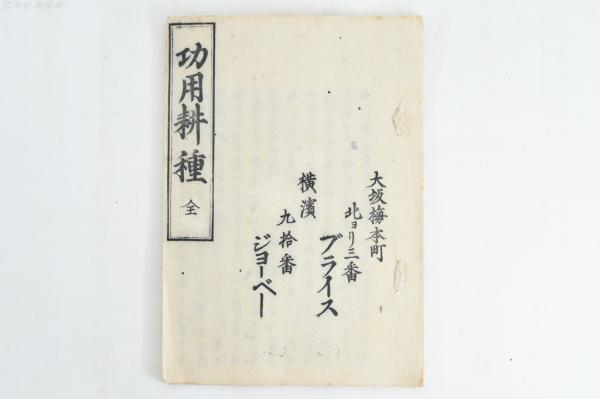 功用耕種 全
大坂梅本町
北ヨリ三番
ブライス
横濱
九拾番
ジョーベー